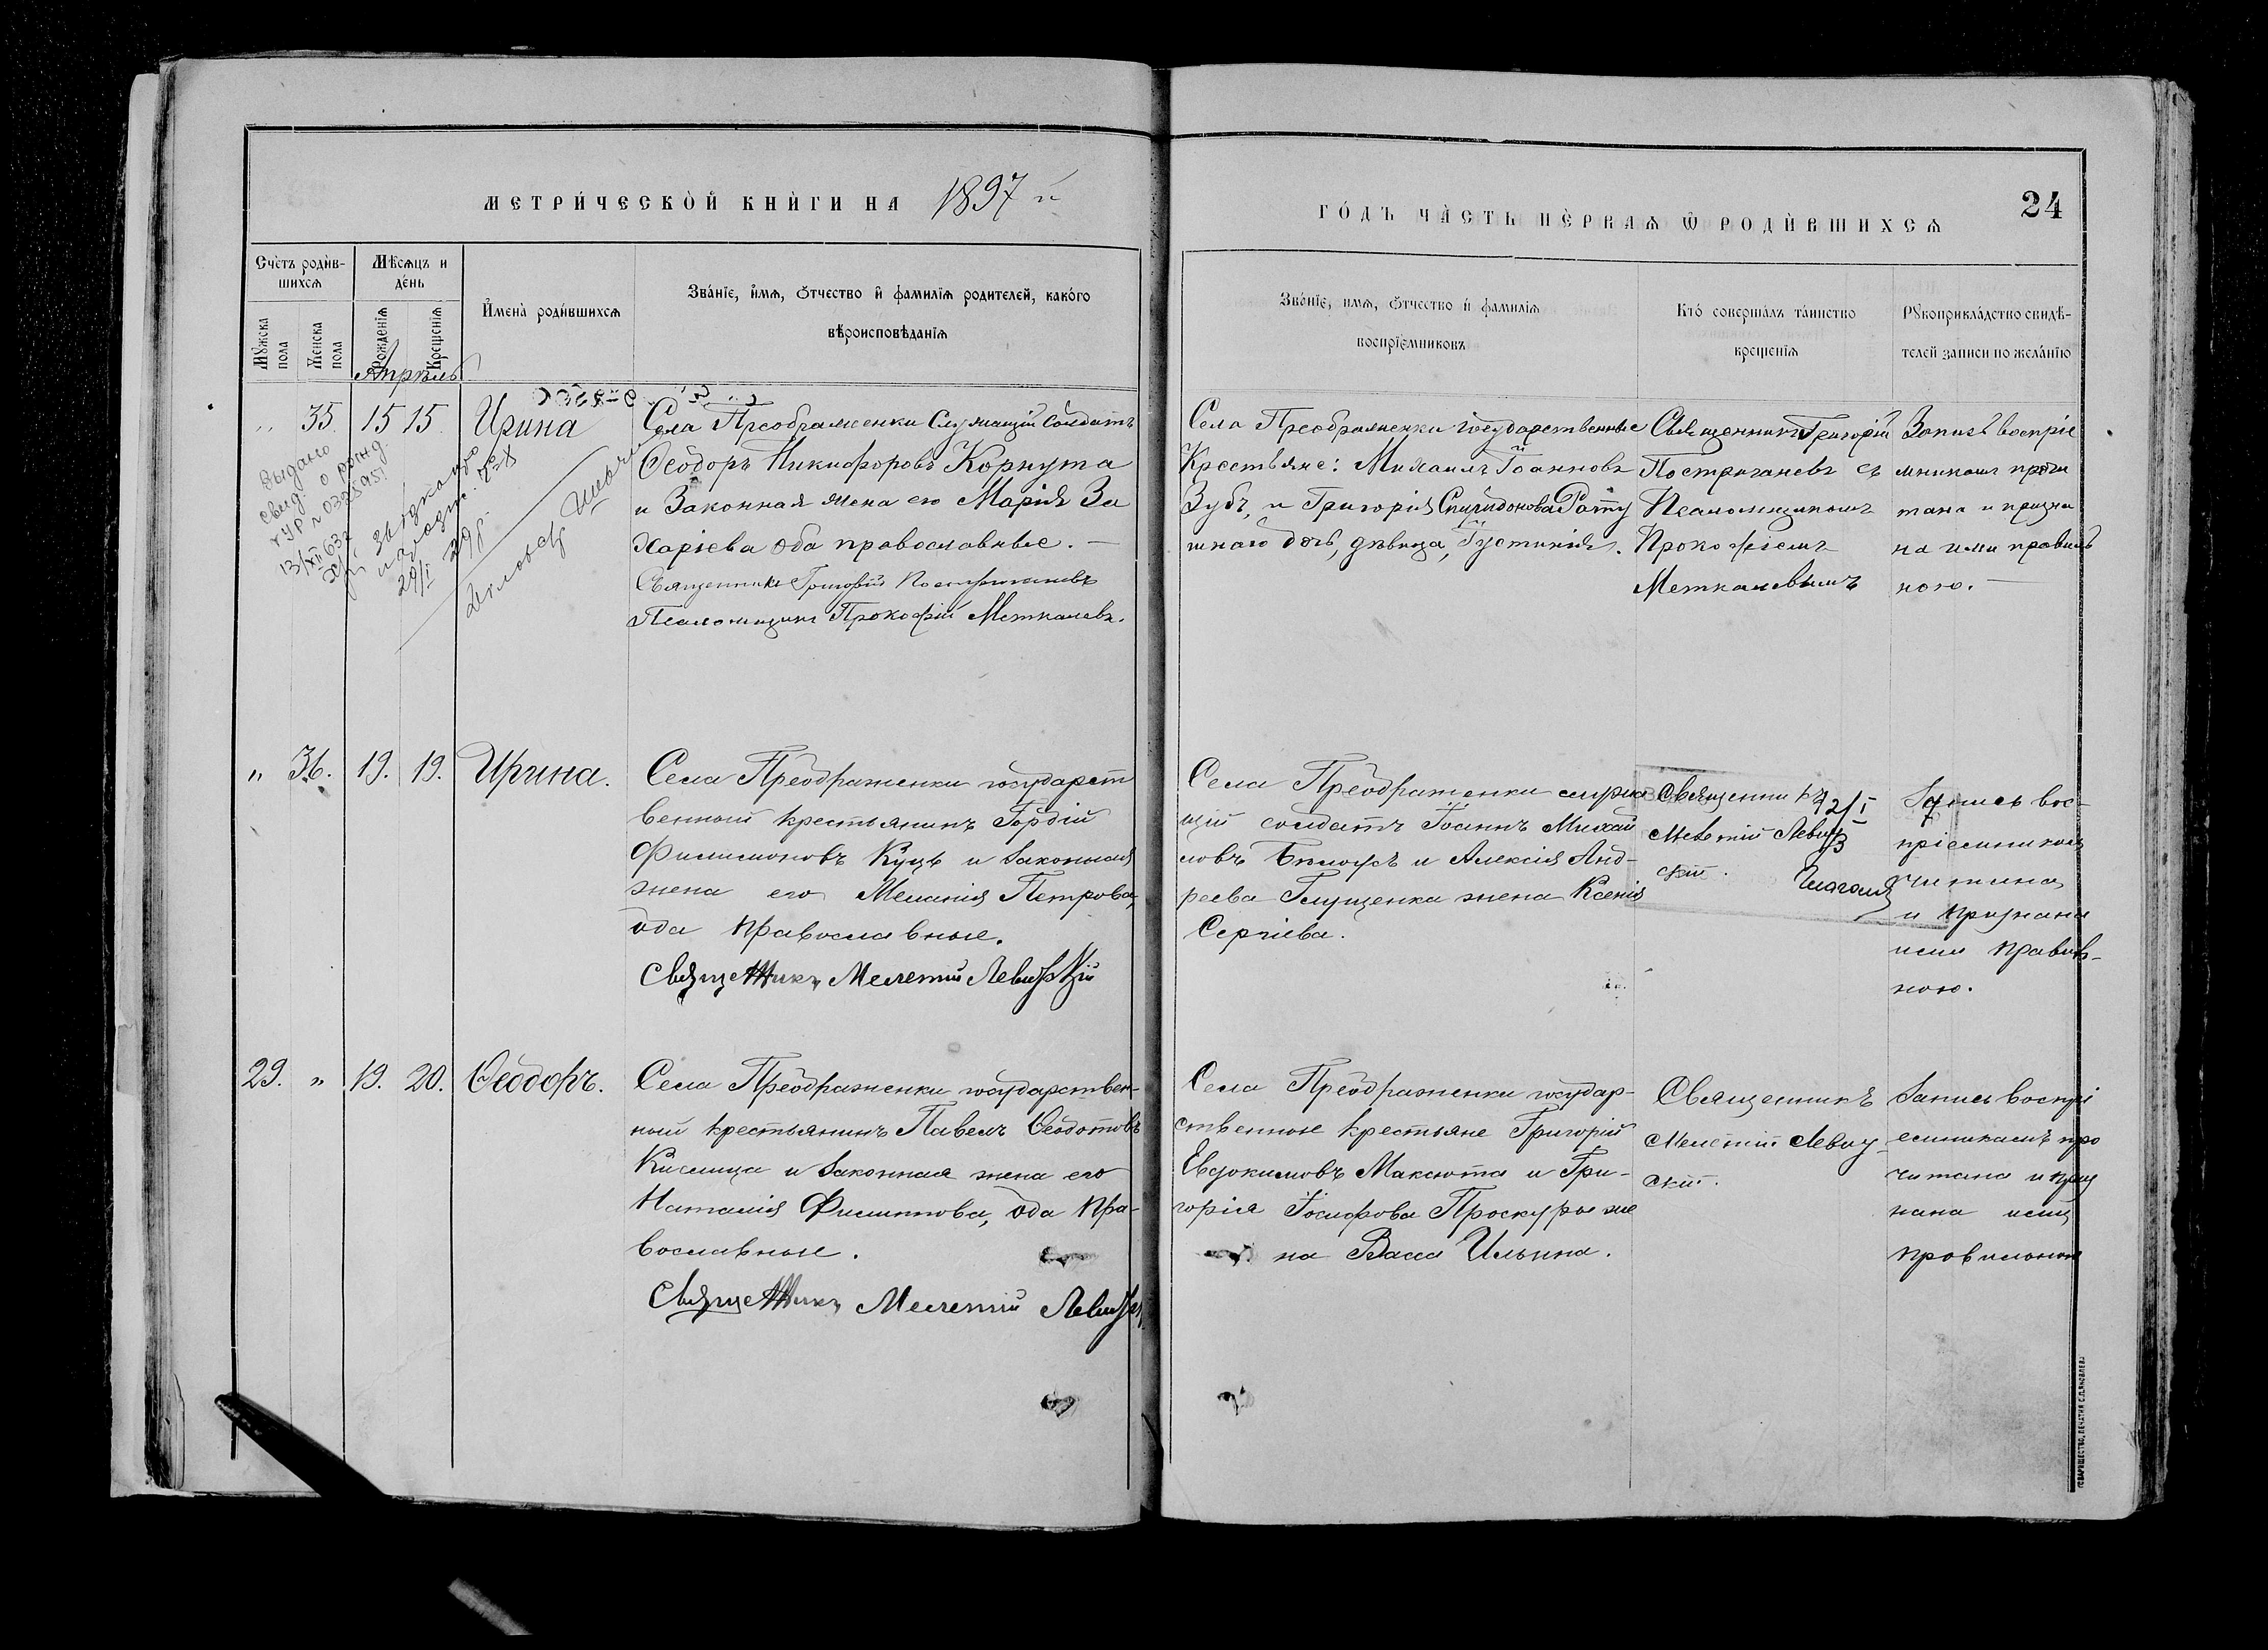 МЕТРИ́ЧЕСКОЙ КНИ́ГИ НА 1897 й
ГО́ДЪ ЧА́СТЬ ПЕ́РВАѦ Ѿ РОДИ́ВШИХСѦ
24
Сче́тъ роди́в-
шихсѧ
Мѣ́сѧцъ и
де́нь
Мꙋжска пола
Женска пола
Рожденїѧ
Крещенїѧ
И҆мена̀ роди́вшихсѧ
Зва́нїе, и҆мѧ, ѻ҆тчество и҆ фамилїѧ родителей, како́го
вѣроисповѣданїѧ
Зва́нїе, имѧ, ѻ҆тчество и҆ фамилїѧ
воспрїемниковъ
Кто̀ совершалъ та́инство
крещенїѧ
Рꙋкоприкла́дство свидѣ-
телей записи по жела́нїю
Апрѣль
„ 35. 15 15 Ирина
Села Преображенки Служащій солдатъ
Ѳеодоръ Никифоровъ Корнута
и Законная жена его Марія За
харіева оба православные. —
Священникъ Григорій Постригачевъ
Псаломщикъ Прокофій Меткалевъ.
Выдано
свид. о рожд.
13/XII 63 г
29/I 39 г
Села Преображенки государственные
Крестьяне: Михаилъ Іоанновъ
Зубъ, и Григорія Спиридонова Рату
шнаго дочь, дѣвица, Іустинія.
Священникъ Григорій
Постригачевъ съ
Псаломщикомъ
Прокофіемъ
Меткалевымъ
Запись воспріе
мникамъ прочи
тана и призна
на ими правиль
ною. —
„ 36. 19. 19. Ирина.
Села Преображенки государст
венный крестьянинъ Гордій
Филимоновъ Куцъ и законная
жена его Меланія Петрова,
оба православные.
Священникъ Мелетій Левицкій
Села Преображенки служа
щій солдатъ Іоаннъ Михай
ловъ Бѣлоусъ и Алексія Анд-
реева Глущенка жена Ксенія
Сергіева.
Священникъ
Мелетій Левиц
кій.
Запись вос-
пріемникам
читана
и признана
ими правиль-
ною.
29. „ 19. 20. Ѳеодоръ.
Села Преображенки государствен-
ный крестьянинъ Павелъ Ѳеодотовъ
Кислица и законная жена его
Наталія Филиппова, оба пра-
вославные.
Священникъ Мелетій Левицкій
Села Преображенки государ-
ственные крестьяне Григорій
Евдокимовъ Максюта и Гри-
горія Іосифова Проскуры же
на Васса Ильина.
Священникъ
Мелетій Левиц-
кій.
Запись воспрі
емникамъ про
читана и приз
нана ими
правильною
ТОВАРИЩЕСТВО „ПЕЧАТНЯ С.П.ЯКОВЛЕВА“